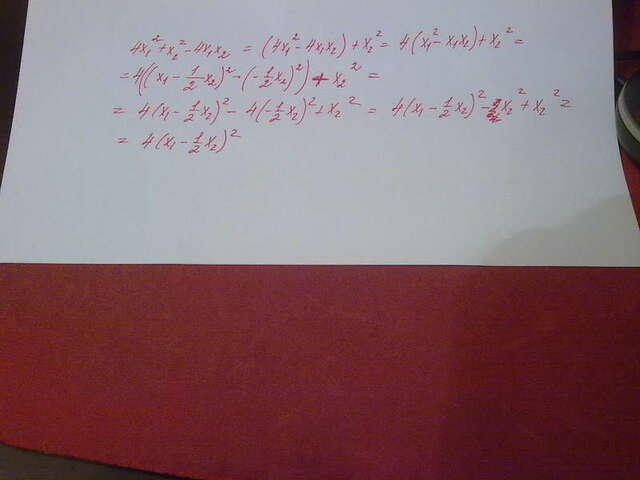 4x₁² + x₂² - 4x₁x₂ = (4x₁² - 4x₁x₂) + x₂² = 4(x₁² - x₁x₂) + x₂² =
= 4((x₁ - 1/2 x₂)² - (-1/2 x₂)²) + x₂² =
= 4(x₁ - 1/2 x₂)² - 4(-1/2 x₂)² + x₂² = 4(x₁ - 1/2 x₂)² - x₂² + x₂² =
= 4(x₁ - 1/2 x₂)²